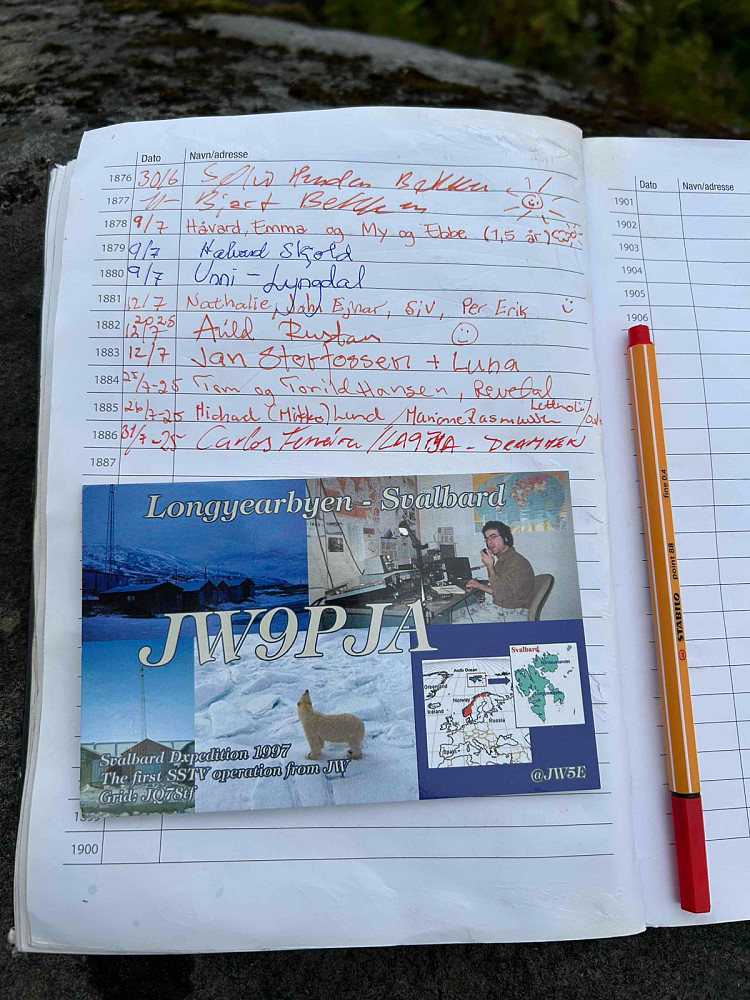 Dato Navn/adresse
1876 30/6 Bekken
1877 -11- Bjart Bekken
1878 9/7 Håvard, Emma og My og Ebbe (1,5 år)
1879 9/7 Halvard Skjold
1880 9/7 Unni - Lyngdal
1881 12/7 Nathalie, John Ejnar, Siv, Per Erik
2025
1882 12/7 Arild Rustan
1883 12/7 Jan Storfossen + Luna
1884 25/7-25 Tom og Torild Hansen, Revetal
1885 26/7-25 Michael (Mikko) Lund / Marianne Rasmussen
1886 31/7-25 Carlos Ferreira / - DRAMMEN
1887
Longyearbyen - Svalbard
JW9PJA
Svalbard
Arctic Ocean
Greenland
Norway
Iceland
Russia
Spain
Svalbard Dxpedition 1997
The first SSTV operation from JW
Grid: JQ78tf
@JW5E
1899
1900
Dato Navn/adresse
1901
1902
1903
1904
1905
1906
STABILO point 88 fine 0,4